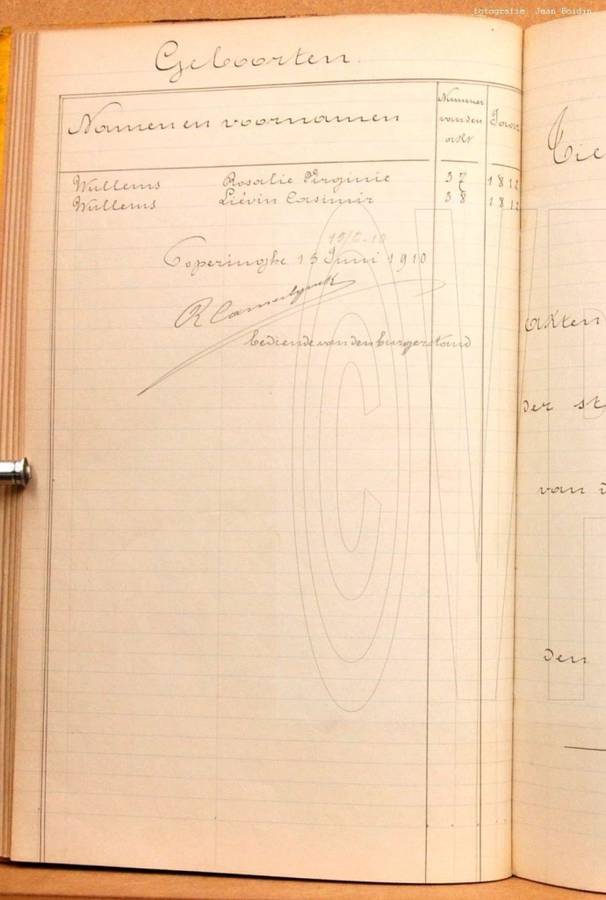 fotografie: Jean Boidin
Geboorten.
Namen en voornamen
Nummer van den akt
Willems Rosalie Virginie 37 1812
Willems Liévin Casimir 38 1812
Poperinghe 15 Juni 1910
bediende van den burgerstand
Akten
der
van
den